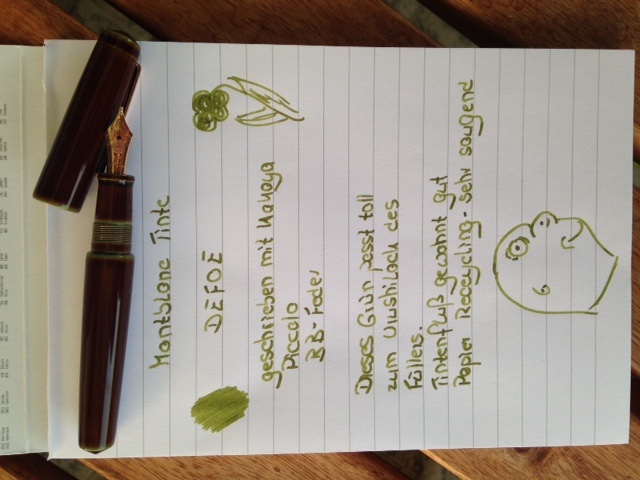 Montblanc Tinte
DEFOE
geschrieben mit Nakaya
Piccolo
BB-Feder
Dieses Grün passt toll
zum Urushilack des
Füllers.
Tintenfluß gewohnt gut
Papier Reecycling - sehr saugend